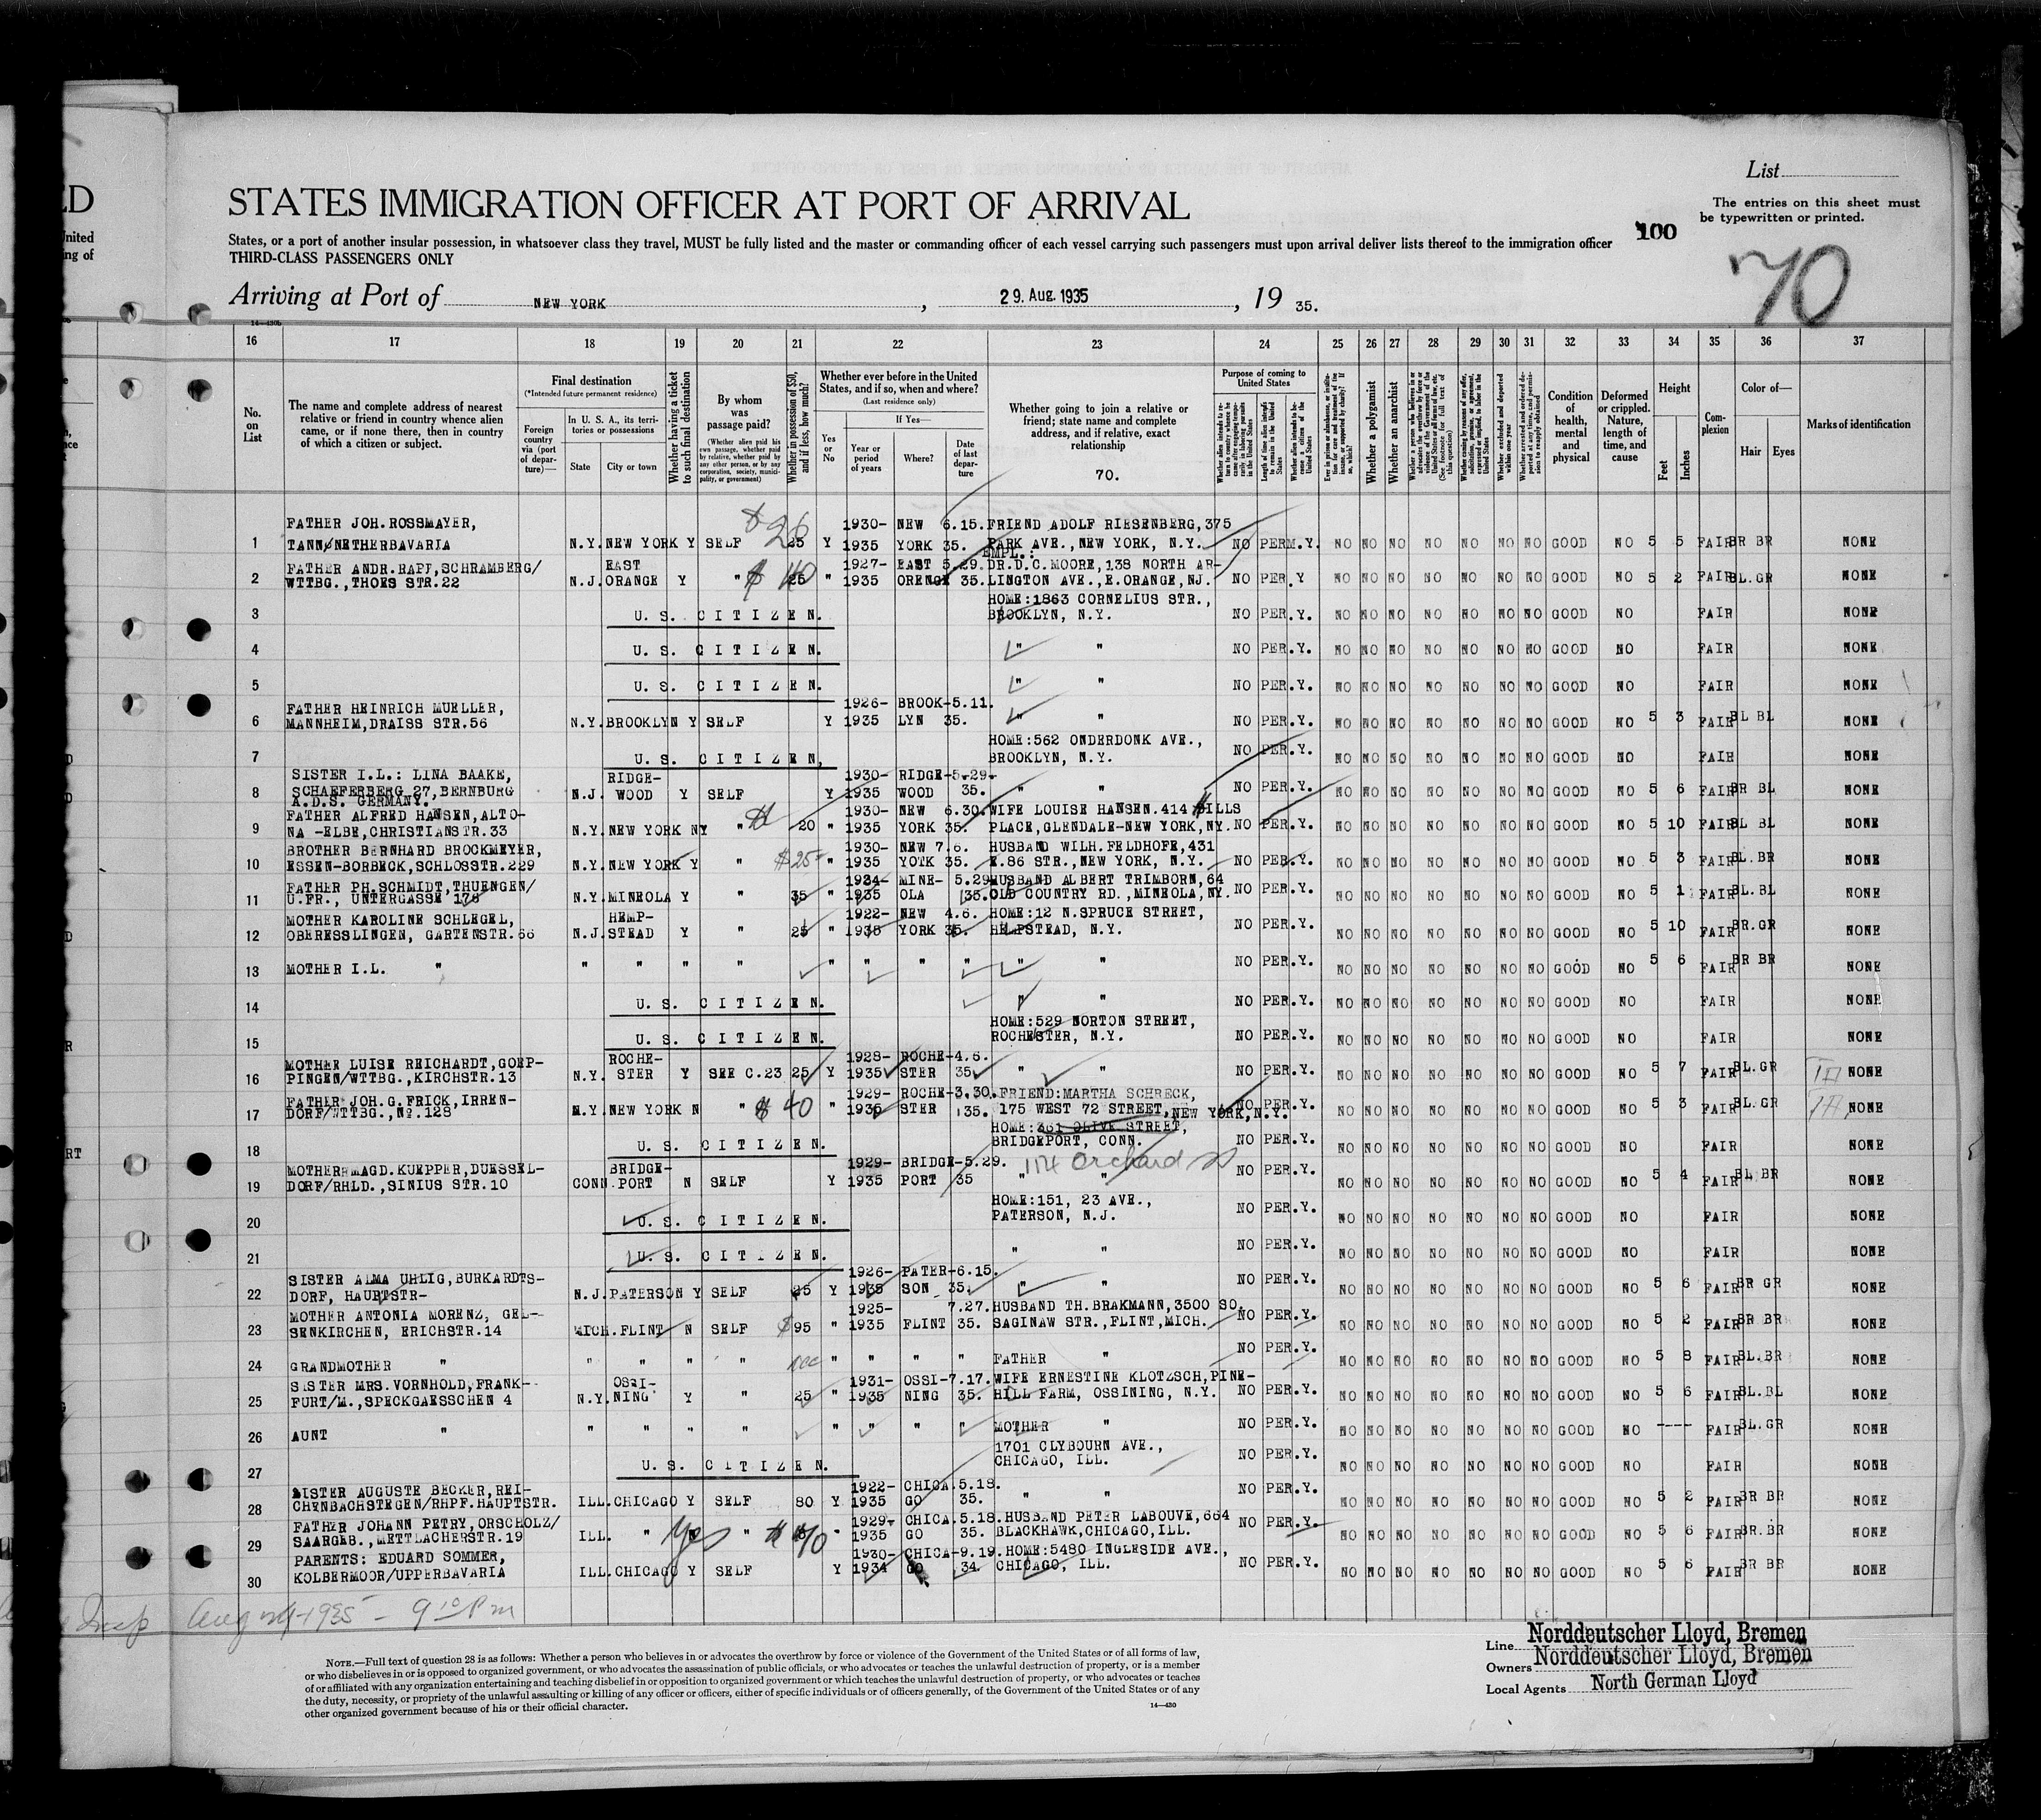 List
The entries on this sheet must
be typewritten or printed.
STATES IMMIGRATION OFFICER AT PORT OF ARRIVAL
100
70
States, or a port of another insular possession, in whatsoever class they travel, MUST be fully listed and the master or commanding officer of each vessel carrying such passengers must upon arrival deliver lists thereof to the immigration officer
THIRD-CLASS PASSENGERS ONLY
Arriving at Port of NEW YORK, 29. Aug. 1935, 19 35.
16 17 18 19 20 21 22 23 24 25 26 27 28 29 30 31 32 33 34 35 36 37
No. on List
The name and complete address of nearest
relative or friend in country whence alien
came, or if none there, then in country
of which a citizen or subject.
Final destination
(*Intended future permanent residence)
Foreign country via (port of departure)—
In U. S. A., its territories or possessions
State City or town
Whether having a ticket to such final destination
By whom was passage paid?
(Whether alien paid his own passage, whether paid by relative, whether paid by any other person, or by any corporation, society, municipality, or government)
Whether in possession of $50, and if less, how much?
Whether ever before in the United
States, and if so, when and where?
(Last residence only)
Yes or No
If Yes—
Year or period of years
Where?
Date of last departure
Whether going to join a relative or
friend; state name and complete
address, and if relative, exact
relationship
70.
Purpose of coming to United States
Whether a polygamist
Whether an anarchist
Condition of health, mental and physical
Deformed or crippled. Nature, length of time, and cause
Height
Feet Inches
Complexion
Color of—
Hair Eyes
Marks of identification
1 FATHER JOH.ROSSMAYER, TANN/NETHERBAVARIA N.Y. NEW YORK Y SELF $26 25 Y 1930-1935 NEW YORK 6.15.35. FRIEND ADOLF RIESENBERG,375 PARK AVE.,NEW YORK, N.Y. NO PERM.Y. NO NO NO NO NO NO NO GOOD NO 5 5 FAIR BR BR NONE
2 FATHER ANDR.RAPP,SCHRAMBERG/WTTBG.,THOES STR.22 N.J. EAST ORANGE Y " $40 25 " 1927-1935 EAST ORENGE 5.29.35. EMPL.: DR.D.C.MOORE,138 NORTH ARLINGTON AVE.,E.ORANGE,NJ. NO PER.Y NO NO NO NO NO NO NO GOOD NO 5 2 FAIR BL.GR NONE
3 U. S. C I T I Z E N. HOME:1863 CORNELIUS STR., BROOKLYN, N.Y. NO PER.Y. NO NO NO NO NO NO NO GOOD NO FAIR NONE
4 U. S. C I T I Z E N. " " NO PER.Y. NO NO NO NO NO NO NO GOOD NO FAIR NONE
5 U. S. C I T I Z E N. " " NO PER.Y. NO NO NO NO NO NO NO GOOD NO FAIR NONE
6 FATHER HEINRICH MUELLER, MANNHEIM,DRAISS STR.56 N.Y. BROOKLYN Y SELF Y 1926-1935 BROOKLYN 5.11.35. " " NO PER.Y. NO NO NO NO NO NO NO GOOD NO 5 3 FAIR BL BL NONE
7 U. S. C I T I Z E N, HOME:562 ONDERDONK AVE., BROOKLYN, N.Y. NO PER.Y. NO NO NO NO NO NO NO GOOD NO FAIR NONE
8 SISTER I.L.: LINA BAAKE, SCHAEFERBERG 27,BERNBURG A.D.S. GERMANY. N.J. RIDGE-WOOD Y SELF Y 1930-1935 RIDGE-WOOD 5.29.35. " " NO PER.Y. NO NO NO NO NO NO NO GOOD NO 5 6 FAIR BR BL NONE
9 FATHER ALFRED HANSEN,ALTONA -ELBE,CHRISTIANSTR.33 N.Y. NEW YORK NY " 20 " 1930-1935 NEW YORK 6.30.35. WIFE LOUISE HANSEN.414 HILLS PLACE,GLENDALE-NEW YORK,NY. NO PER.Y. NO NO NO NO NO NO NO GOOD NO 5 10 FAIR BL BL NONE
10 BROTHER BERNHARD BROCKMEYER, ESSEN-BORBECK,SCHLOSSTR.229 N.Y. NEW YORK Y " $25- " 1930-1935 NEW YOTK 7.6.35. HUSBAND WILH.FELDHOFE,431 E.86 STR.,NEW YORK, N.Y. NO PER.Y. NO NO NO NO NO NO NO GOOD NO 5 3 FAIR BL.BR NONE
11 FATHER PH.SCHMIDT,THUENGEN/U.FR., UNTERGASSE 176 N.Y. MINEOLA Y " 35 " 1934-1935 MINE-OLA 5.29.35. HUSBAND ALBERT TRIMBORN,64 OLD COUNTRY RD.,MINEOLA,NY. NO PER.Y. NO NO NO NO NO NO NO GOOD NO 5 1 FAIR BL.BL NONE
12 MOTHER KAROLINE SCHLEGEL, OBERESSLINGEN, GARTENSTR.66 N.J. HEMP-STEAD Y " 25 " 1922-1935 NEW YORK 4.6.35. HOME:12 N.SPRUCE STREET, HEMPSTEAD, N.Y. NO PER.Y. NO NO NO NO NO NO NO GOOD NO 5 10 FAIR BR.GR NONE
13 MOTHER I.L. " " " " " " " " " " " NO PER.Y. NO NO NO NO NO NO NO GOOD NO 5 6 FAIR BR BR NONE
14 U. S. C I T I Z E N. " " NO PER.Y. NO NO NO NO NO NO NO GOOD NO FAIR NONE
15 U. S. C I T I Z E N. HOME:529 NORTON STREET, ROCHESTER, N.Y. NO PER.Y. NO NO NO NO NO NO NO GOOD NO FAIR NONE
16 MOTHER LUISE REICHARDT,GOEPPINGEN/WTTBG.,KIRCHSTR.13 N.Y. ROCHE-STER Y SEE C.23 25 Y 1928-1935 ROCHE-STER 4.6.35 " " NO PER.Y. NO NO NO NO NO NO NO GOOD NO 5 7 FAIR BL.GR NONE
17 FATHER JOH.G.FRICK,IRRENDORF/WTTBG.,No.128 N.Y. NEW YORK N " $40 " 1929-1935 ROCHE-STER 3.30.35. FRIEND:MARTHA SCHRECK, 175 WEST 72 STREET,NEW YORK,N.Y. NO PER.Y. NO NO NO NO NO NO NO GOOD NO 5 3 FAIR BL.GR NONE
18 U. S. C I T I Z E N. HOME:361 OLIVE STREET, BRIDGEPORT, CONN. NO PER.Y. NO NO NO NO NO NO NO GOOD NO FAIR NONE
19 MOTHER MAGD.KUEPPER,DUESSELDORF/RHLD.,SINIUS STR.10 CONN. BRIDGE-PORT N SELF Y 1929-1935 BRIDGE-PORT 5.29.35 114 Orchard St " " NO PER.Y. NO NO NO NO NO NO NO GOOD NO 5 4 FAIR BL BR NONE
20 U. S. C I T I Z E N. HOME:151, 23 AVE., PATERSON, N.J. NO PER.Y. NO NO NO NO NO NO NO GOOD NO FAIR NONE
21 U. S. C I T I Z E N. " " NO PER.Y. NO NO NO NO NO NO NO GOOD NO FAIR NONE
22 SISTER ALMA UHLIG,BURKARDTSDORF, HAUPTSTR- N.J. PATERSON Y SELF 25 Y 1926-1935 PATER-SON 6.15.35. " " NO PER.Y. NO NO NO NO NO NO NO GOOD NO 5 6 FAIR BR GR NONE
23 MOTHER ANTONIA MORENZ, GELSENKIRCHEN, ERICHSTR.14 MICH. FLINT N SELF $95 " 1925-1935 FLINT 7.27.35. HUSBAND TH.BRAKMANN,3500 SO. SAGINAW STR.,FLINT,MICH. NO PER.Y. NO NO NO NO NO NO NO GOOD NO 5 2 FAIR BR BR NONE
24 GRANDMOTHER " " " " " " " " " FATHER " NO PER.Y. NO NO NO NO NO NO NO GOOD NO 5 8 FAIR BL.BR NONE
25 SISTER MRS.VORNHOLD,FRANKFURT/M.,SPECKGAESSCHEN 4 N.Y. OSSI-NING Y " 25 " 1931-1935 OSSI-NING 7.17.35. WIFE ERNESTINE KLOTZSCH,PINE-HILL FARM, OSSINING, N.Y. NO PER.Y. NO NO NO NO NO NO NO GOOD NO 5 6 FAIR BL.BL NONE
26 AUNT " " " " " " " " " MOTHER " NO PER.Y. NO NO NO NO NO NO NO GOOD NO ---- FAIR BL.GR NONE
27 U. S. C I T I Z E N. 1701 CLYBOURN AVE., CHICAGO, ILL. NO PER.Y. NO NO NO NO NO NO NO GOOD NO FAIR NONE
28 SISTER AUGUSTE BECKER,REICHENBACHSTEGEN/RHPF.HAUPTSTR. ILL. CHICAGO Y SELF 80 Y 1922-1935 CHICAGO 5.18.35. " " NO PER.Y. NO NO NO NO NO NO NO GOOD NO 5 2 FAIR BR BR NONE
29 FATHER JOHANN PETRY,ORSCHOLZ/SAARGEB.,METTLACHERSTR.19 ILL. " Yes " $40 " 1929-1935 CHICAGO 5.18.35. HUSBAND PETER LABOUVE,664 BLACKHAWK,CHICAGO,ILL. NO PER.Y. NO NO NO NO NO NO NO GOOD NO 5 6 FAIR BR.BR NONE
30 PARENTS: EDUARD SOMMER, KOLBERMOOR/UPPERBAVARIA ILL. CHICAGO Y SELF Y 1930-1934 CHICA-GO 9.19.34. HOME:5480 INGLESIDE AVE., CHICAGO, ILL. NO PER.Y. NO NO NO NO NO NO NO GOOD NO 5 6 FAIR BR BR NONE
Insp Aug 29-1935 - 9 10 Pm
NOTE.—Full text of question 28 is as follows: Whether a person who believes in or advocates the overthrow by force or violence of the Government of the United States or of all forms of law,
or who disbelieves in or is opposed to organized government, or who advocates the assassination of public officials, or who advocates or teaches the unlawful destruction of property, or is a member
of or affiliated with any organization entertaining and teaching disbelief in or opposition to organized government or which teaches the unlawful destruction of property, or who advocates or teaches
the duty, necessity, or propriety of the unlawful assaulting or killing of any officer or officers, either of specific individuals or of officers generally, of the Government of the United States or of any
other organized government because of his or their official character.
14—430
Line Norddeutscher Lloyd, Bremen
Owners Norddeutscher Lloyd, Bremen
Local Agents North German Lloyd